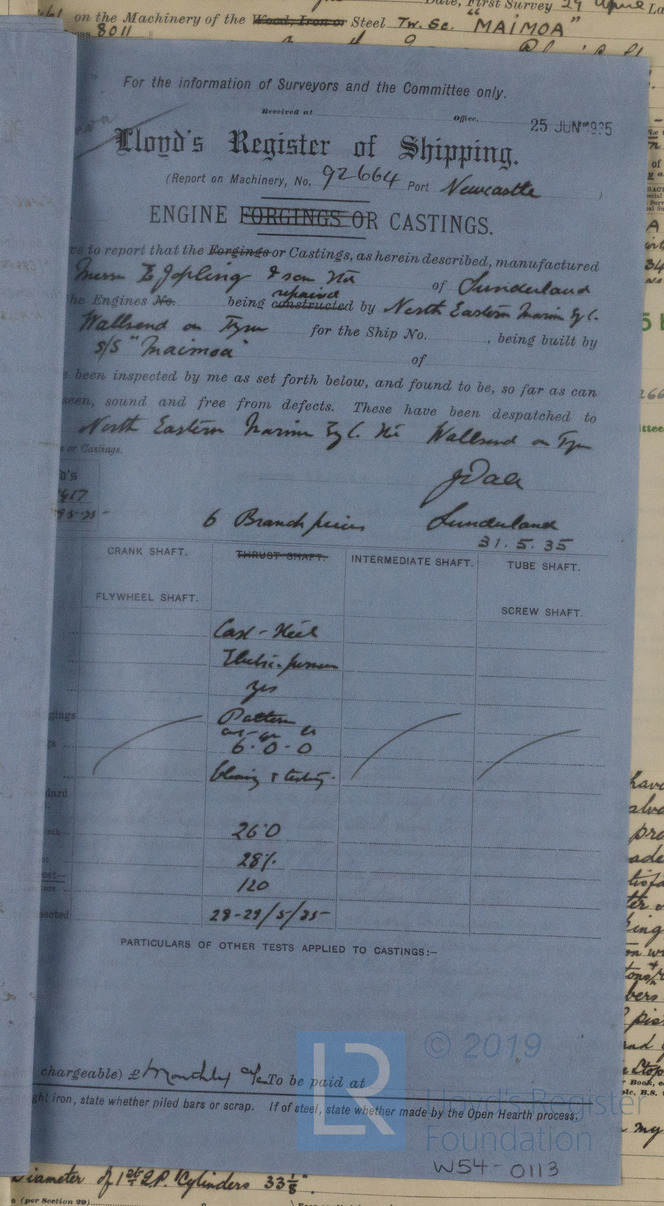 Date, First Survey 29 April La
on the Machinery of the Wood, Iron or Steel Tw. Sc. "MAIMOA"
8011
For the information of Surveyors and the Committee only.
Received at Office, 25 JUN 1935
Lloyd's Register of Shipping.
(Report on Machinery, No. 92664 Port Newcastle )
ENGINE FORGINGS OR CASTINGS.
ve to report that the Forgings or Castings, as herein described, manufactured
Messrs E Jopling & son Ltd of Sunderland
he Engines No. being constructed repaired by North Eastern Marine Eg C.
Wallsend on Tyne for the Ship No. , being built by
S/S "Maimoa" of
e been inspected by me as set forth below, and found to be, so far as can
seen, sound and free from defects. These have been despatched to
North Eastern Marine Eg C. Ltd Wallsend on Tyne
or Castings.
d's
J Dale
6 Branch pieces Sunderland
31.5.35
CRANK SHAFT. THRUST SHAFT. INTERMEDIATE SHAFT. TUBE SHAFT.
FLYWHEEL SHAFT. SCREW SHAFT.
Cast-Steel
Electric furnace
yes
gings Pattern
6.0.0
testing.
26.0
28%
120
28-29/5/35
PARTICULARS OF OTHER TESTS APPLIED TO CASTINGS:—
chargeable) £ Monthly a/c To be paid at
ght iron, state whether piled bars or scrap. If of steel, state whether made by the Open Hearth process.
© 2019
LR
Lloyd's Register
Foundation
W54-0113
Diameter of 1st L.P. Cylinders 33 1/8".
(per Section 29)